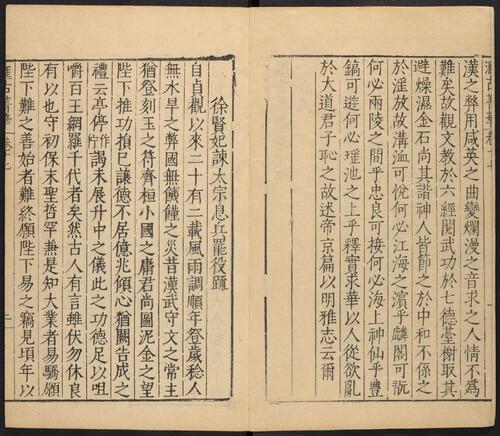 漢之弊用咸英之曲變爛漫之音求之人情不爲
難矣故觀文教於六經閱武功於七德臺榭取其
避燥濕金石尚其諧神人皆節之於中和不係之
於淫放故溝洫可悅何必江海之濱乎麟閣可翫
何必兩陵之間乎忠良可接何必海上神仙乎豐
鎬可遊何必瑶池之上乎釋實求華以人從欲亂
於大道君子恥之故述帝京篇以明雅志云爾
徐賢妃諫太宗息兵罷役䟽
自貞觀以來二十有二載風雨調順年登歲稔人
無水旱之弊國無饑饉之災昔漢武守文之常主
猶登刻玉之符齊桓小國之庸君尚圖泥金之望
陛下推功損已讓德不居億兆傾心猶闕告成之
禮云亭停佇作謁未展升中之儀此之功德足以咀
嚼百王網羅千代者矣然古人有言雖伏勿休良
有以也守初保末聖哲罕兼是知大業者易驕願
陛下難之善始者難終願陛下易之竊見頃年以